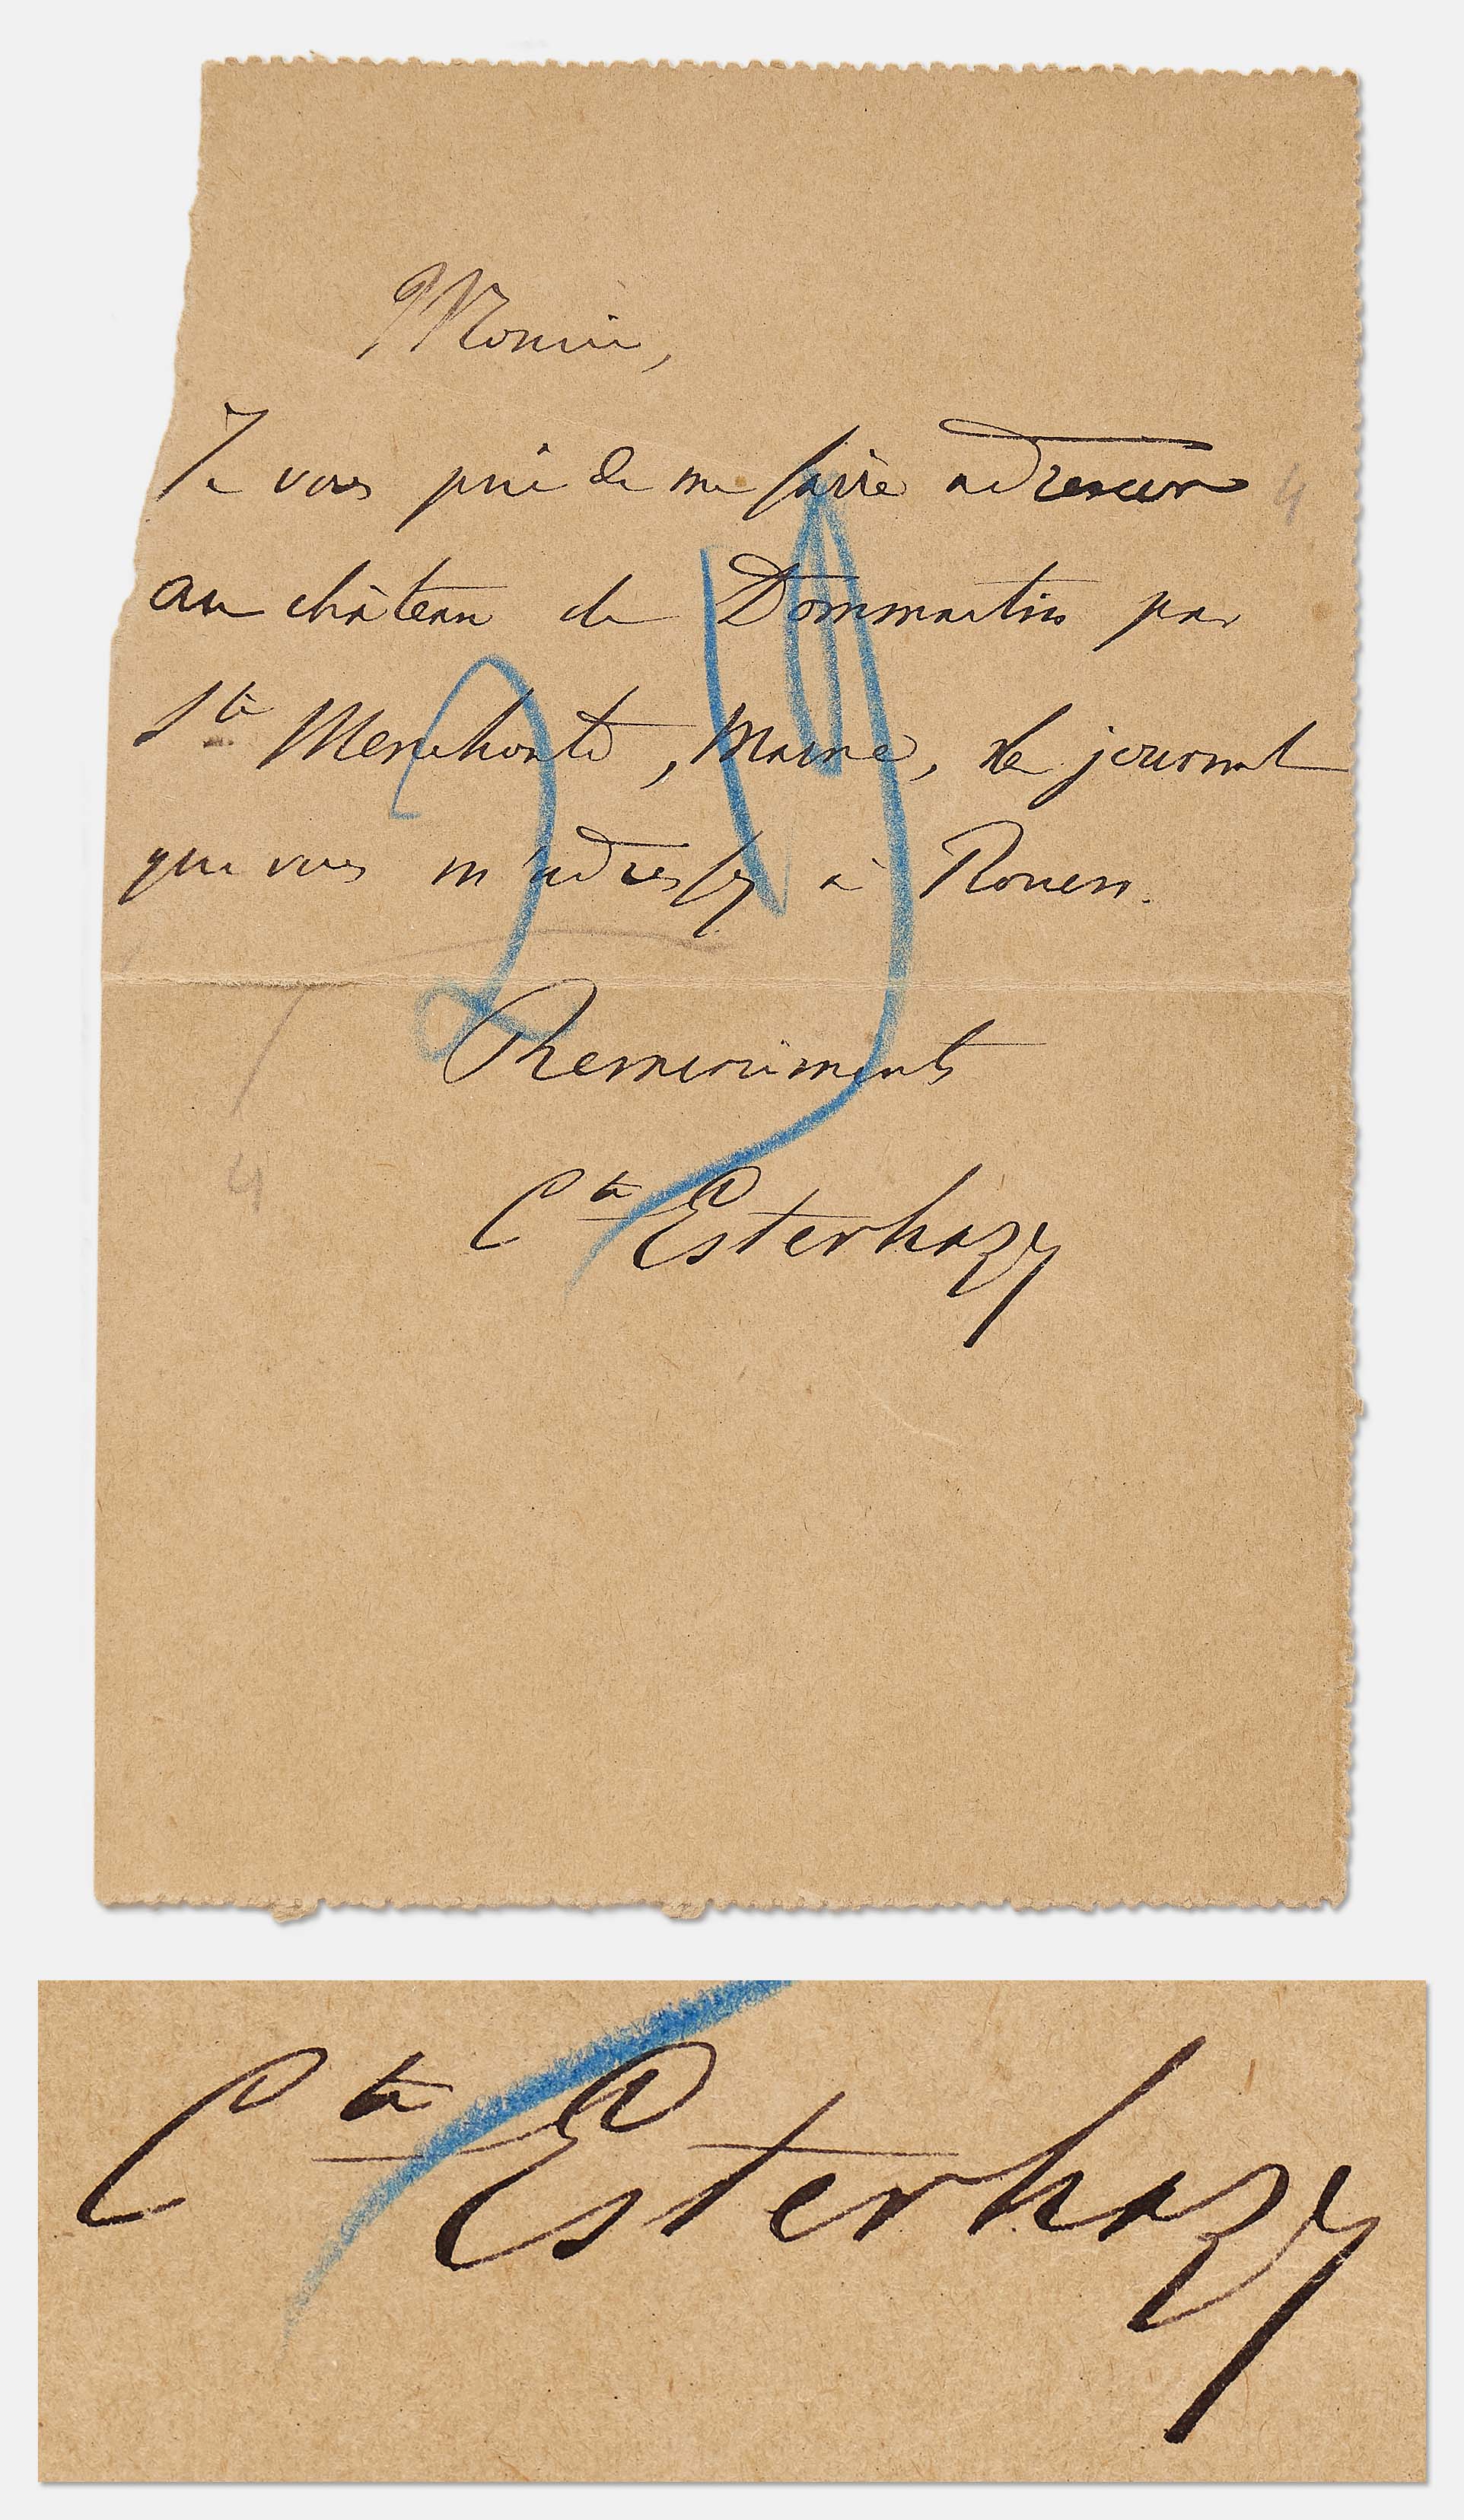 Monsieur,
Je vous prie de me faire adresser
au château de Dommartin par
Ste Menehould, Marne, le journal
que vous m'adressez à Rouen.
Remerciements
Cte Esterhazy
4
25
4
Cte Esterhazy